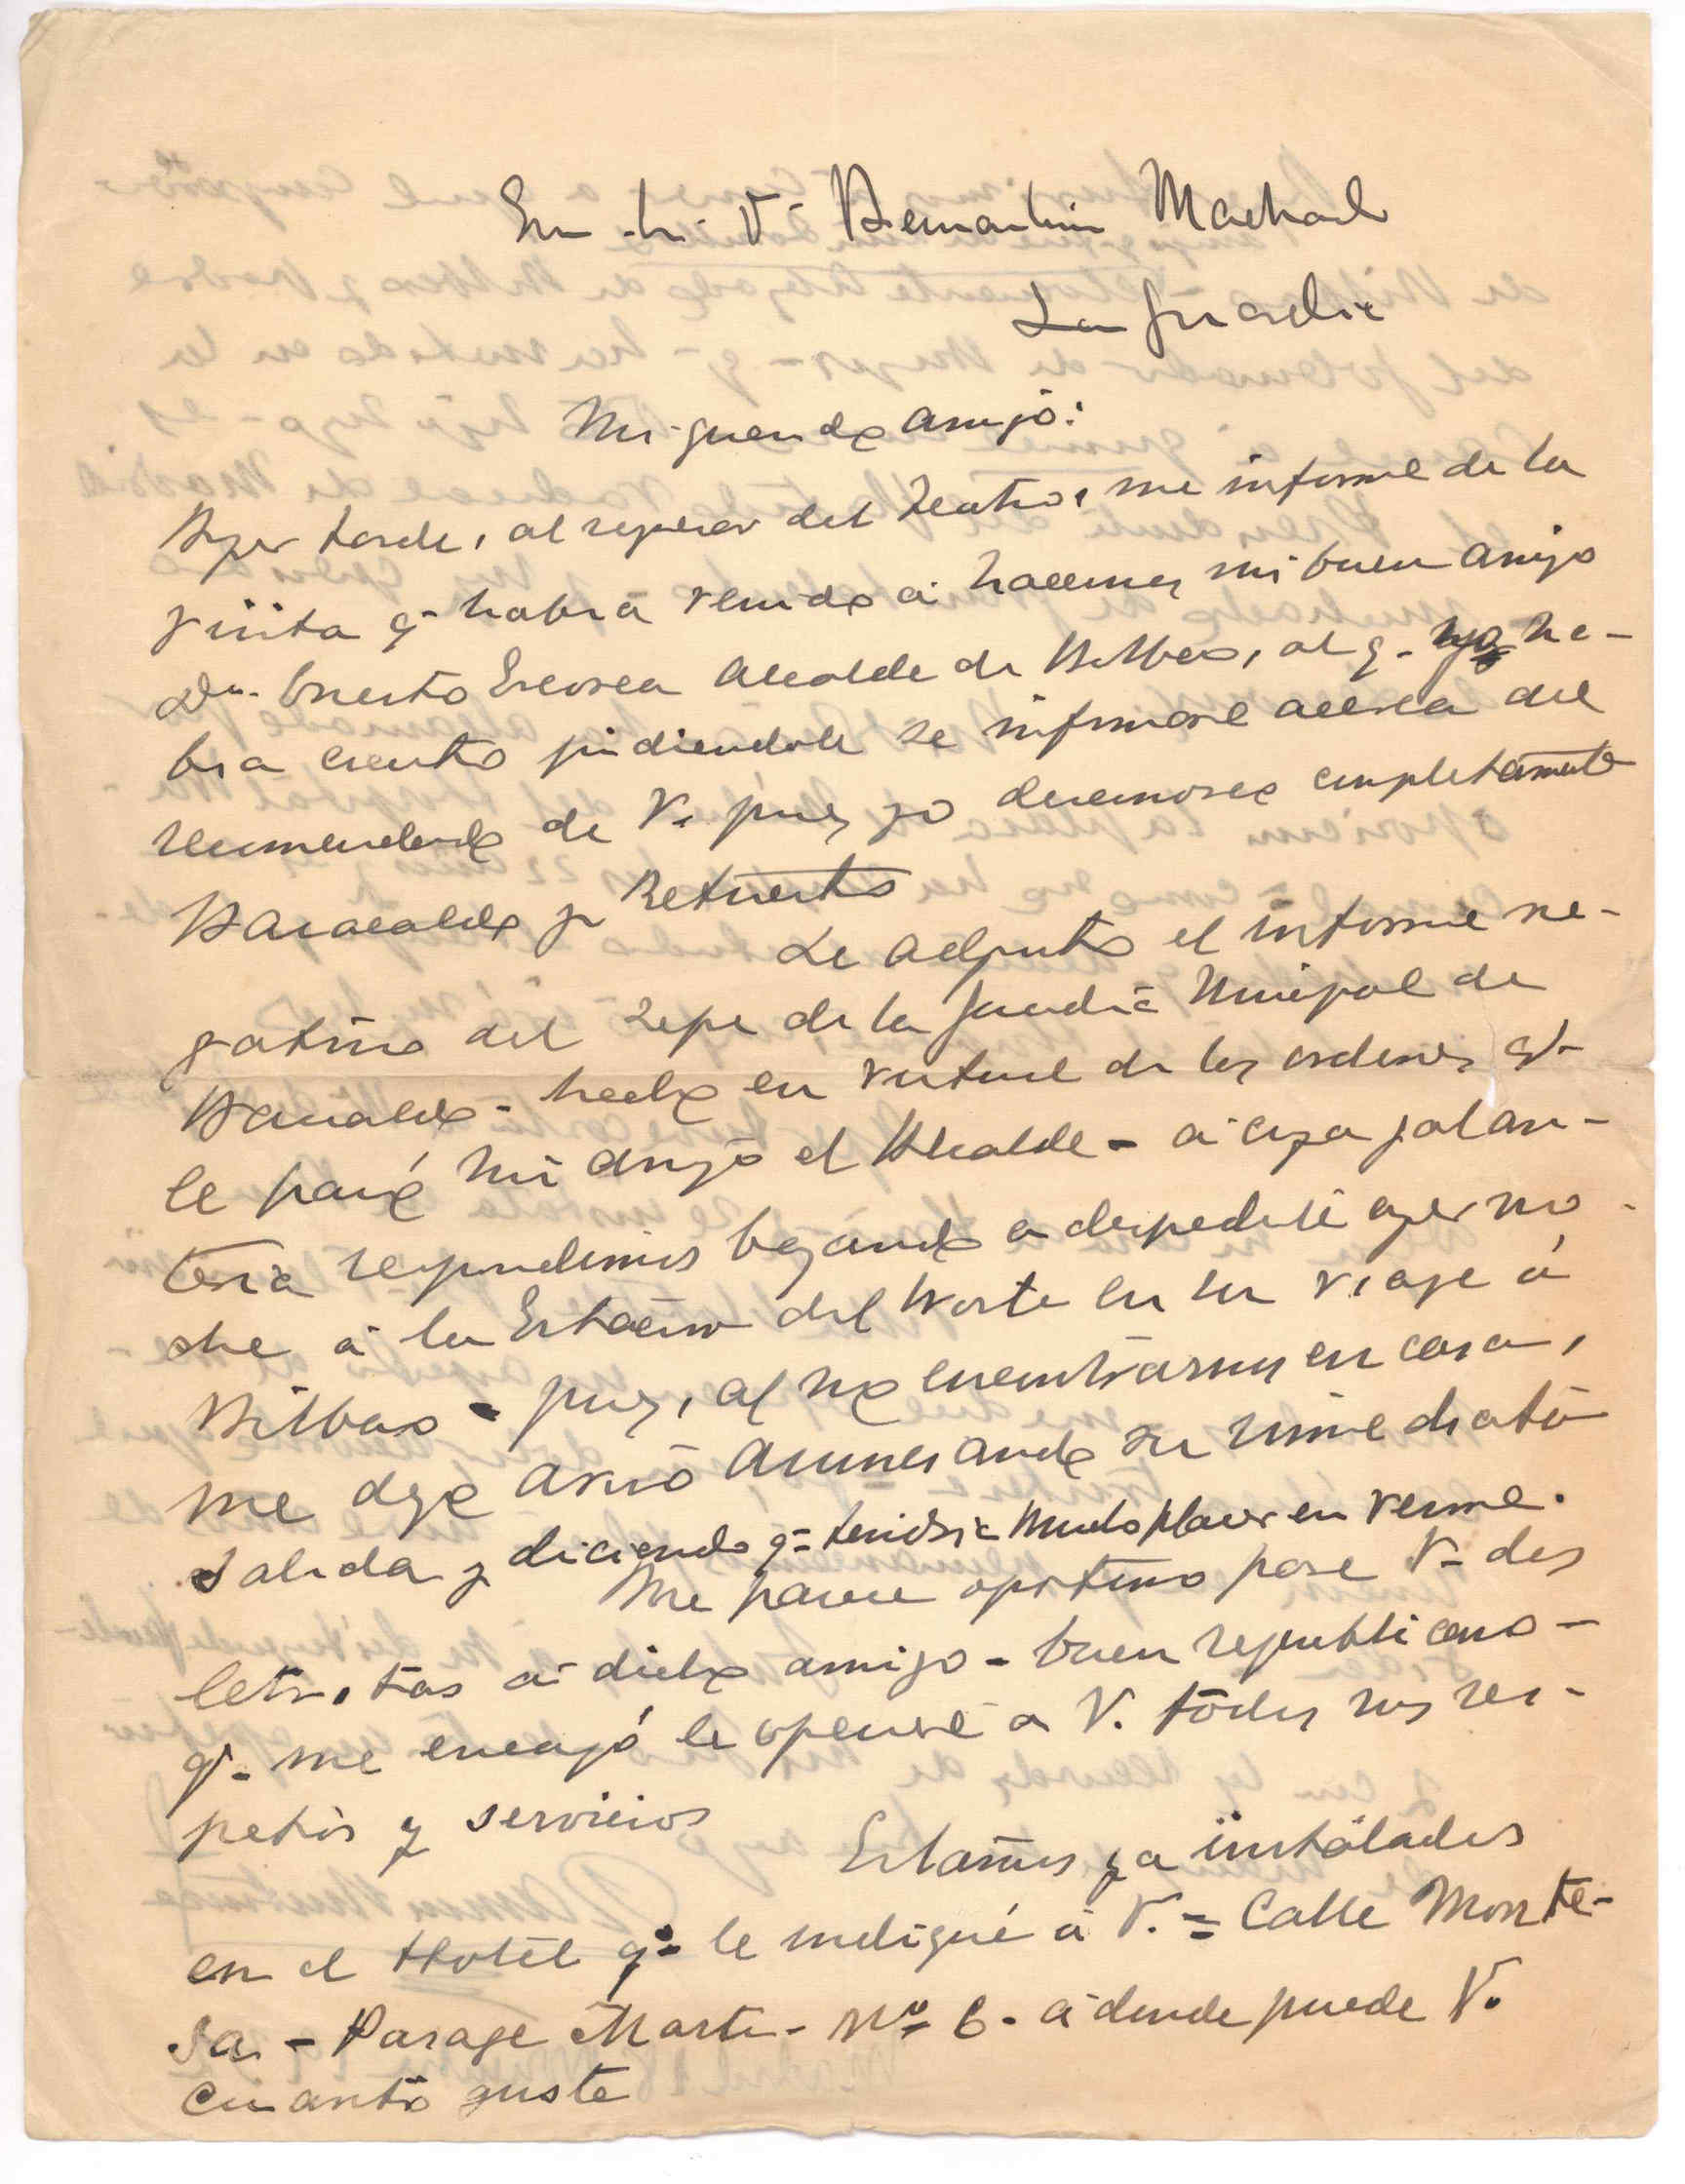 Exmo. Sr. D. Bernardino Machado
La Guardia
Mi querido amigo:
Ayer tarde, al regresar del Teatro, me informé de la
visita q. habia venido á hacernos mi buen amigo
Dn. Ernesto Ercoreca Alcalde de Bilbao, al q. yo ha-
bia escrito pidiendole se informase acerca del
recomendado de V. pues yo desconozco completamente
Baracaldo y Retuerto
Le adjunto el informe ne-
gativo del Jefe de la Guardia Municipal de
Baracaldo - hecho en virtud de las ordenes q.
le pasó mi amigo el Alcalde - á cuya galan-
teria respondimos bajando a despedirle ayer no-
che á la Estación del Norte en su viaje á
Bilbao - pues, al no encontrarnos en casa,
me dejó aviso anunciando su inmediata
salida y diciendo q. tendria mucho placer en verme.
Me parece oportuno pase V. dos
letritas á dicho amigo - buen republicano -
q. me encargó le ofreciese a V. todos sus res-
petos y servicios
Estamos ya instalados
en el Hotel q. le indiqué á V. = Calle Monte-
sa - Pasage Marti - Nº 6 - á donde puede V.
cuanto guste